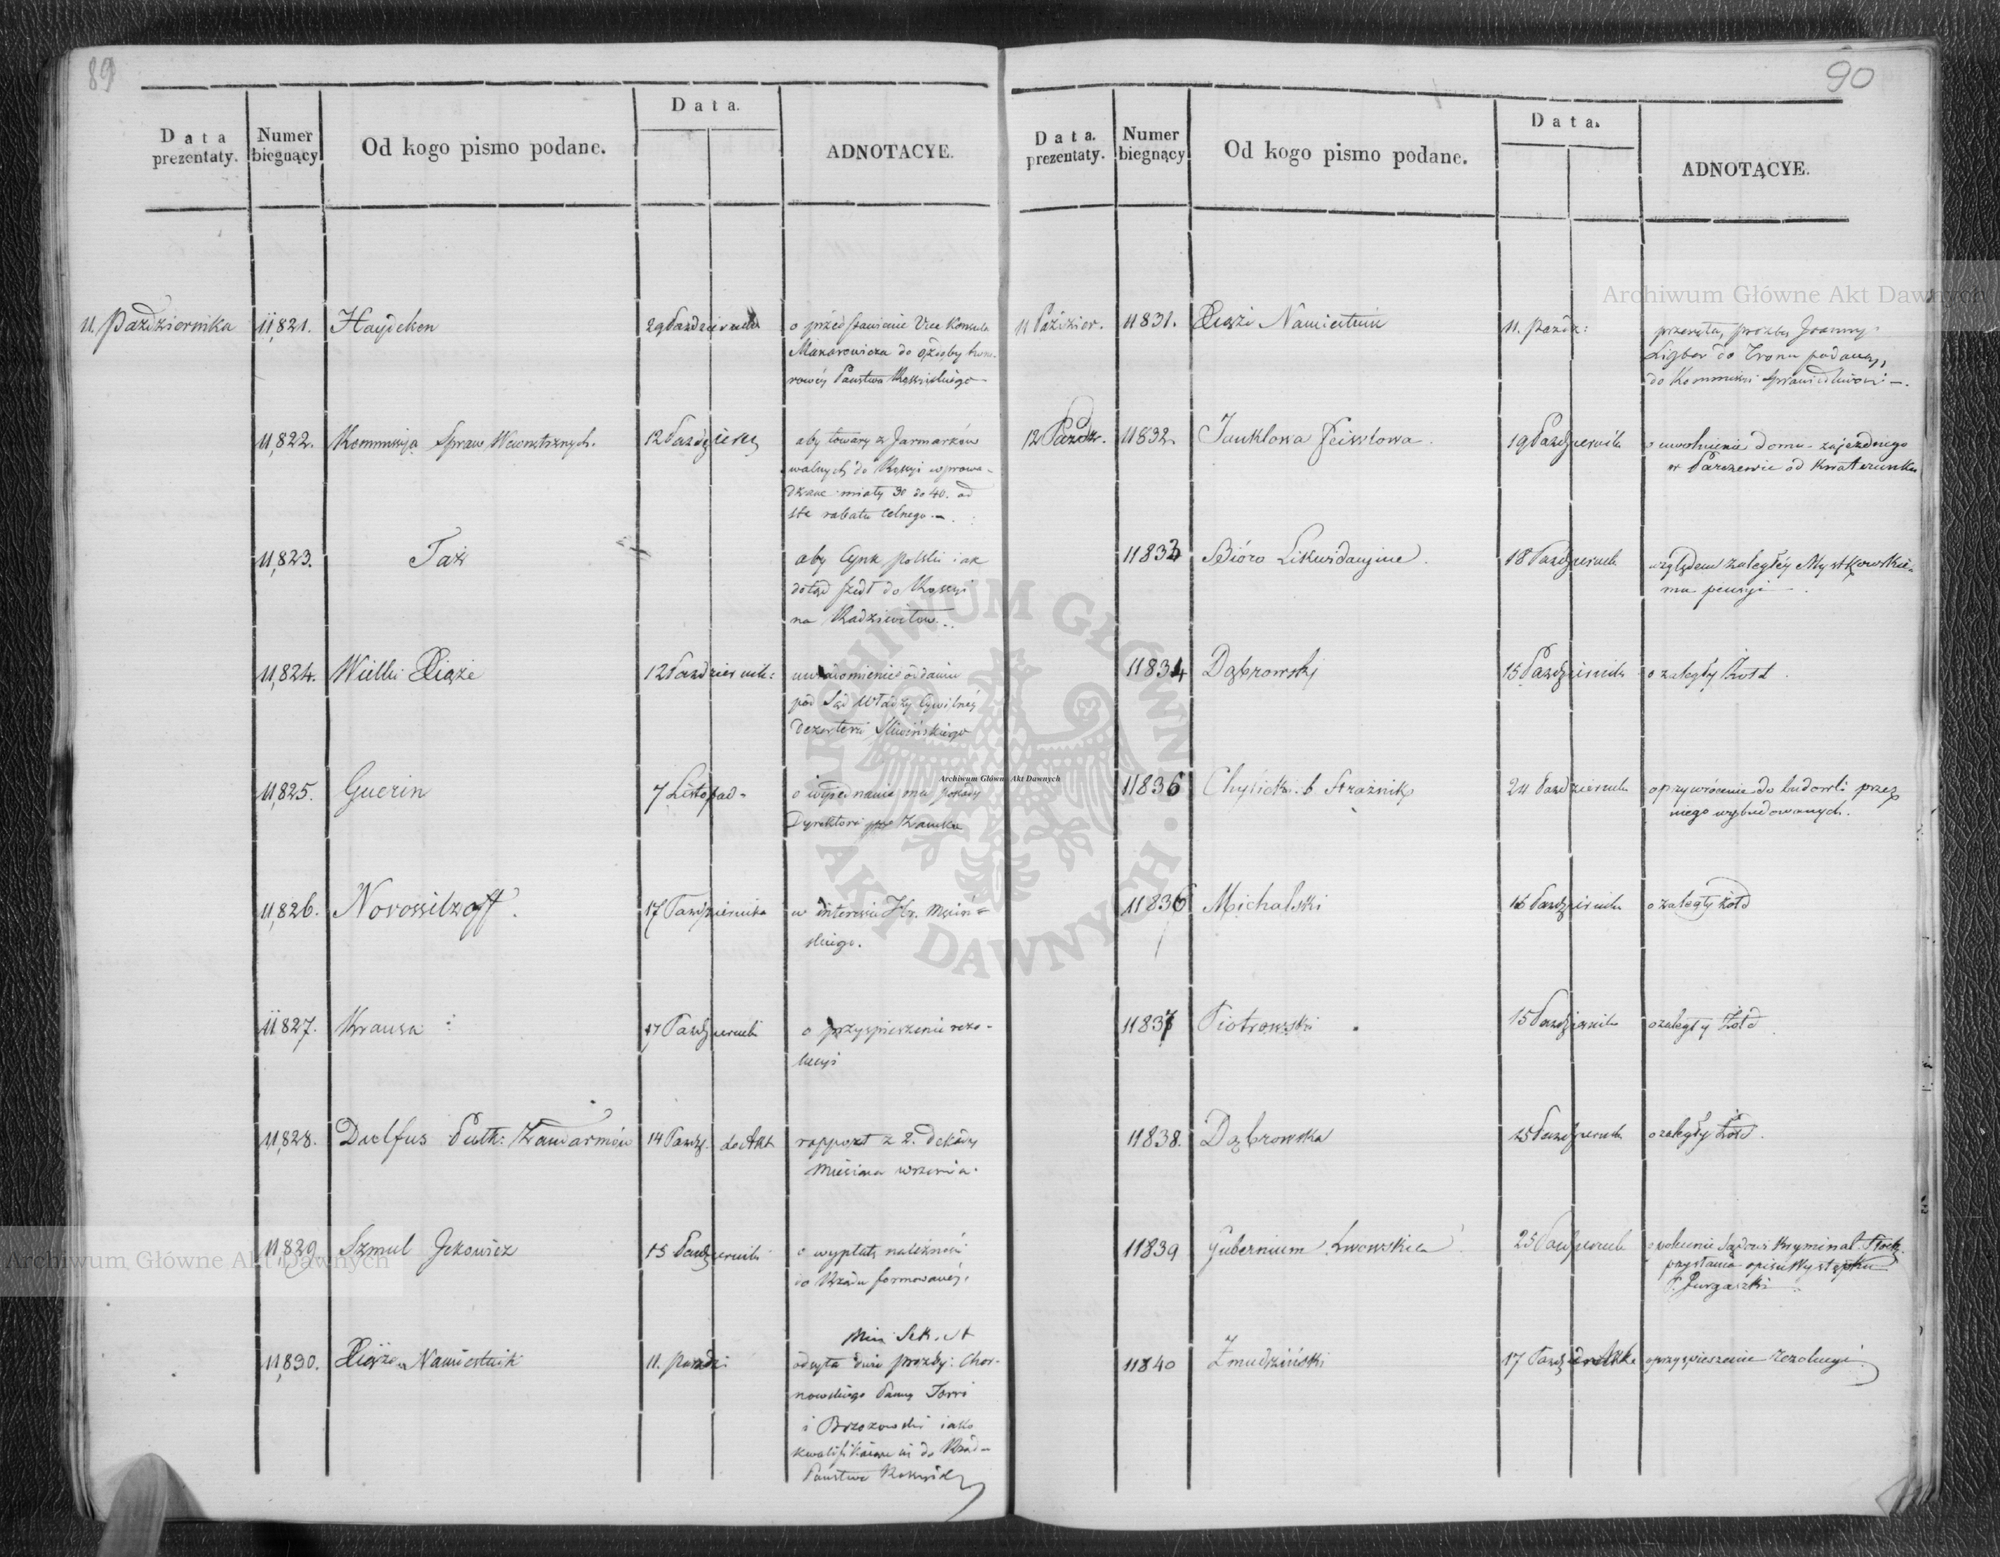 89
Data prezentaty.
Numer biegnący
Od kogo pismo podane.
Data.
ADNOTACYE.
11. Października
11,821.
Haydeken
29 Październik
o przedstawienie Vice Konsula
Makarowicza do ozdoby hono-
rowéy Państwa
11,822.
Kommissja Spraw Wewnętrznych.
12 Paździer
aby towary z Jarmarków
walnych do Rossyi wprowa-
dzane miały 30 do 40. od
sta rabatu celnego —.
11,823.
Taż
aby Cynk polski iak
dotąd szedł do Rossyi
na Radziwiłow.
11,824.
Wielki Xiąże
12 Październik:
uwiadomienie oddaniu
pod Sąd Władzy Cywilnéy
Dezertera Śliwińskiego
11,825.
Guerin
7 Listopad-
o wyjednanie mu posady
Dyrektora Zamku
11,826.
Novossilzoff.
17 Października
w interesie Hr.
skiego.
11827.
Krausa :
17 Październik
o przyspieszenie rezo-
lucyi
11,828.
Dulfus Pułk: Żandarmów
14 Paźdz.
rapport z 2. Dekady
Miesiąca września.
11,829
Szmul Jckowicz
15 Październik
o wypłatę należności
do Rządu formowanéy.
11,830.
Xiąże Namiestnik
11. paździ:
Min. Sek. St
odsyła dwie prozby: Chor-
nowskiego Panny Torri
i Brzozowski iako
kwalifikuiące się do Rząd-
Państwa
90
Data. prezentaty.
Numer biegnący
Od kogo pismo podane.
Data.
ADNOTACYE.
11 Paździer.
11831.
Xiąże Namiestnik
11. Paźdz:
przesyła prozbę Joanny
do Tronu podaną,
do Kommissyi Sprawiedliwości —.
12 Paźdz.
11832.
Janklowa Feiwlowa.
19 Październik
o uwolnienie domu zajezdnego
w Parczewie od kwaterunku
11833
Bióro Likwidacyine.
18 Październik
względem zaległéy Mystkowskie-
mu pensyi —.
11834
Dąbrowskj
15 Październik
o zaległy Żołd.
11836
Chylicki b Strażnik
24 Październik
o przywrócenie do budowli przez
niego wybudowanych.
11836
Michalski
16 Październik
o zaległy żołd
11837
Piotrowski
15 Październik
o zaległy Żołd.
11838.
Dąbrowska
15 Październik
o zaległy Żołd.
11839
Gubernium Lwowskie
25 Październik
o polecenie Sądowi Kryminal: Płock.
przysłania opisu Występku
P.
11840
Żmudziński
17 Paźdz
o przyspieszenie rezolucyi.
Archiwum Główne Akt Dawnych
Archiwum Główne Akt Dawnych
Archiwum Główne Akt Dawnych
ARCHIWUM GŁÓWNE AKT DAWNYCH